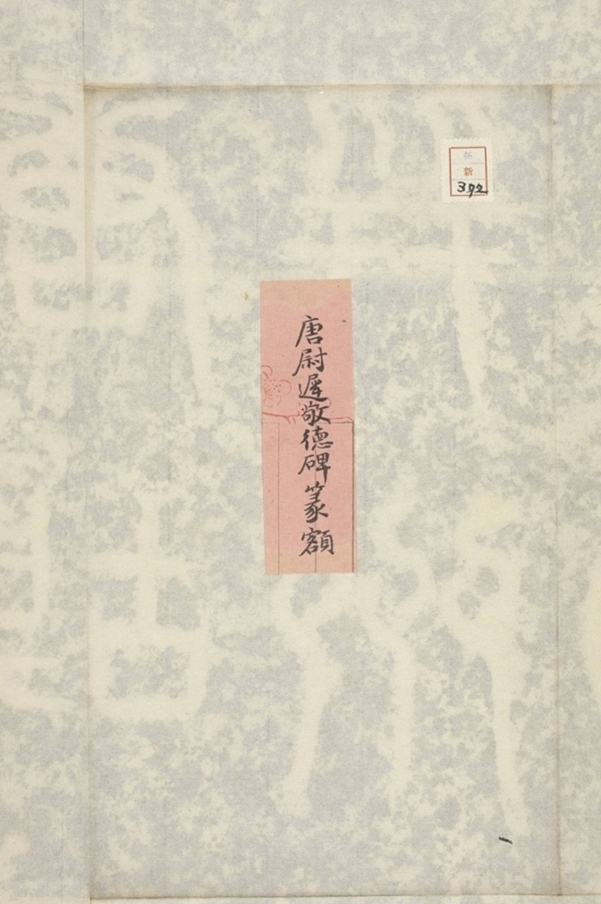 新
392
唐尉遲敬德碑篆額